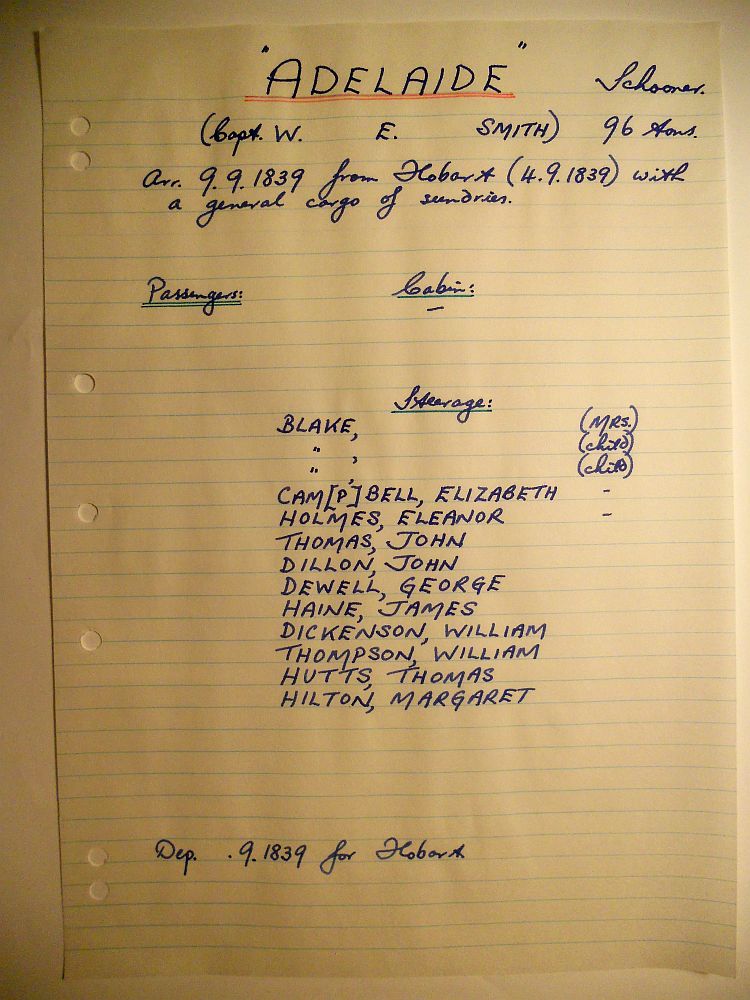 "ADELAIDE" Schooner.
(Capt. W. E. SMITH) 96 tons.
Arr. 9.9.1839 from Hobart (4.9.1839) with
a general cargo of sundries.
Passengers: Cabin:
—
Steerage:
BLAKE, (MRS.)
" , (child)
" , (child)
CAM[P]BELL, ELIZABETH -
HOLMES, ELEANOR -
THOMAS, JOHN
DILLON, JOHN
DEWELL, GEORGE
HAINE, JAMES
DICKENSON, WILLIAM
THOMPSON, WILLIAM
HUTTS, THOMAS
HILTON, MARGARET
Dep. .9.1839 for Hobart